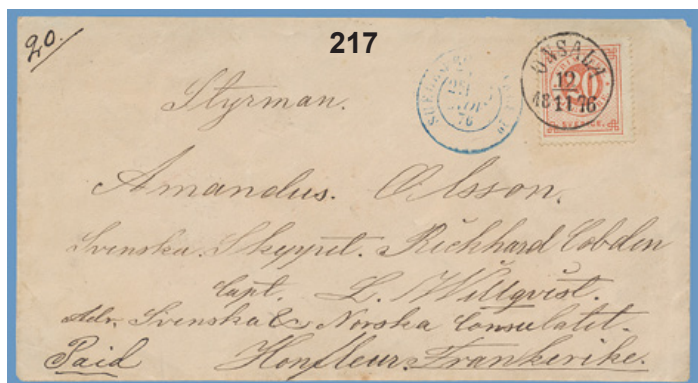 20.
217
ONSALA
12
18 11 76
20
SVERIGE.
76
Styrman.
Amandus. Olsson.
Svenska. Skeppet. Richhard Cobden
Capt. L. Willqvist.
Adr. Svenska & Norska Consulatet.
Paid Honfleur. Frankerike.